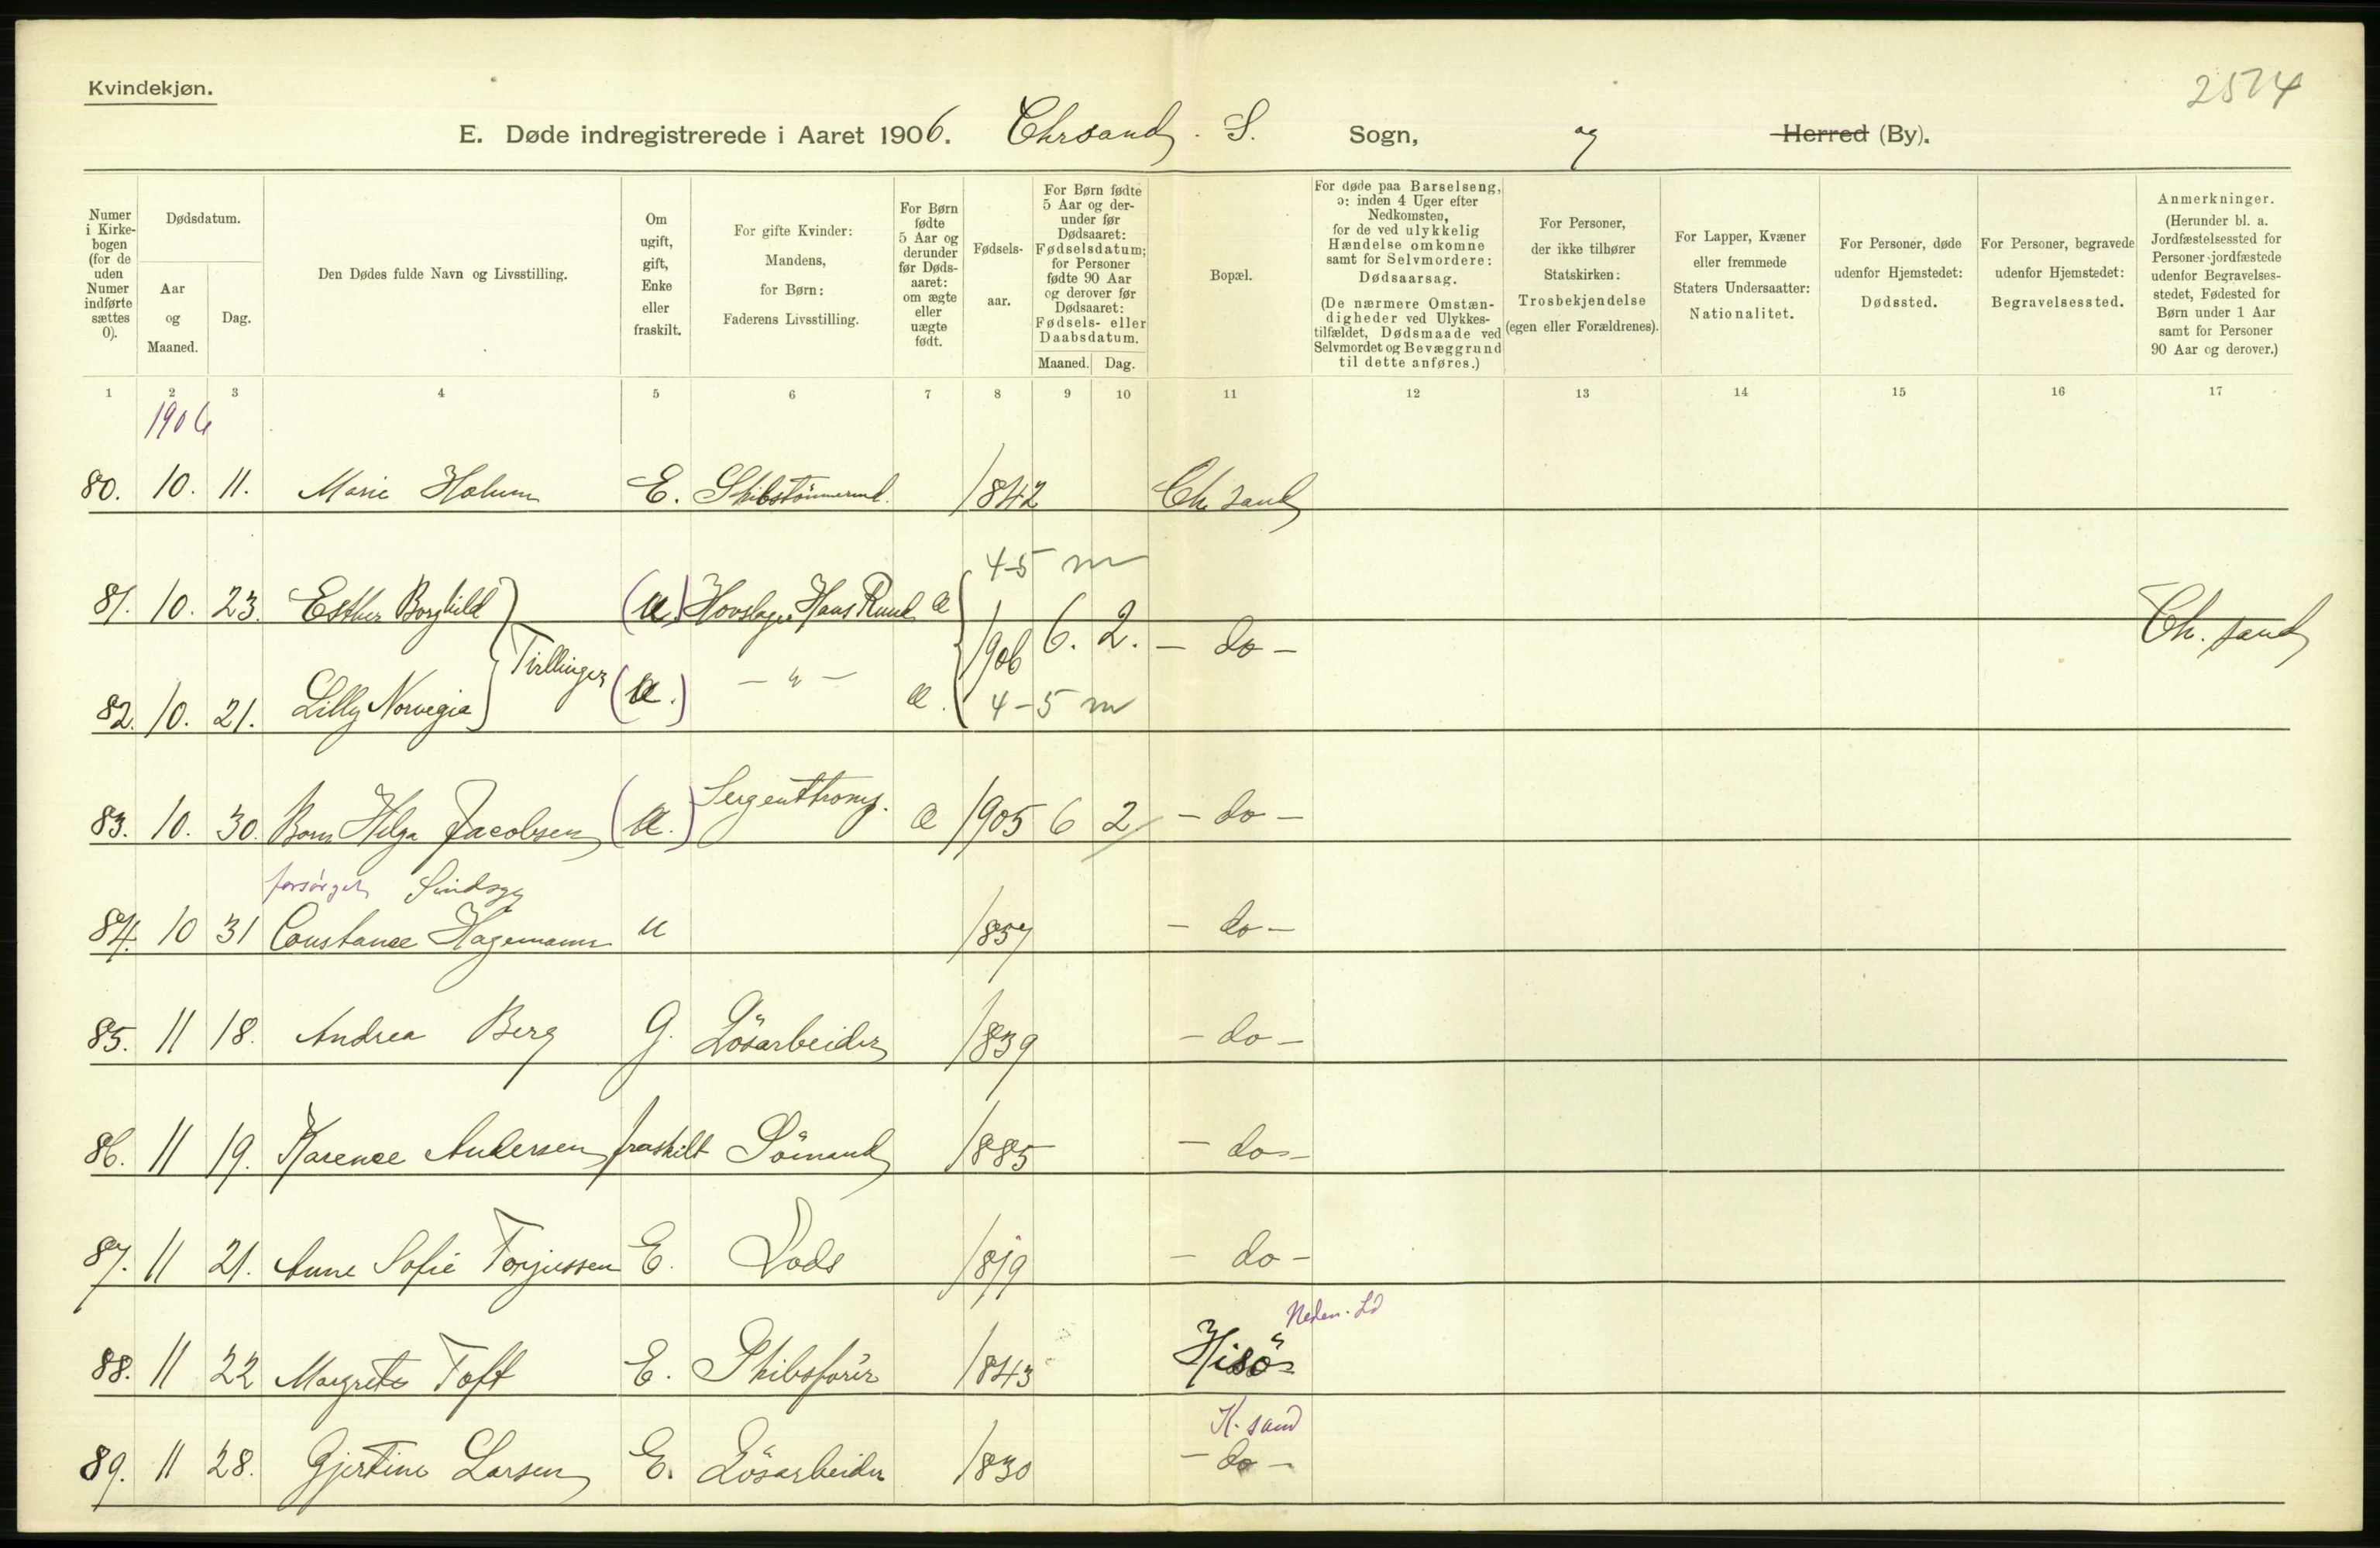 Kvindekjøn.
2574
E. Døde indregistrerede i Aaret 1906. Chrsand. S. Sogn, og Herred (By).
Numer i Kirke- bogen (for de uden Numer indførte sættes 0).
Dødsdatum.
Aar og Maaned.
Dag.
Den Dødes fulde Navn og Livsstilling.
Om ugift, gift, Enke eller fraskilt.
For gifte Kvinder: Mandens, for Børn: Faderens Livsstilling.
For Børn fødte 5 Aar og derunder før Døds- aaret: om ægte eller uægte født.
Fødsels- aar.
For Børn fødte 5 Aar og der- under før Dødsaaret: Fødselsdatum; for Personer fødte 90 Aar og derover før Dødsaaret: Fødsels- eller Daabsdatum.
Maaned. Dag.
Bopæl.
For døde paa Barselseng, ɔ: inden 4 Uger efter Nedkomsten, for de ved ulykkelig Hændelse omkomne samt for Selvmordere: Dødsaarsag.
(De nærmere Omstæn- digheder ved Ulykkes- tilfældet, Dødsmaade ved Selvmordet og Bevæggrund til dette anføres.)
For Personer, der ikke tilhører Statskirken: Trosbekjendelse (egen eller Forældrenes).
For Lapper, Kvæner eller fremmede Staters Undersaatter: Nationalitet.
For Personer, døde udenfor Hjemstedet: Dødssted.
For Personer, begravede udenfor Hjemstedet: Begravelsessted.
Anmerkninger.
(Herunder bl. a. Jordfæstelsessted for Personer jordfæstede udenfor Begravelses- stedet, Fødested for Børn under 1 Aar samt for Personer 90 Aar og derover.)
1 2 3 4 5 6 7 8 9 10 11 12 13 14 15 16 17
1906
80. 10. 11. Marie Holum E. Skibstömmermd. 1842 Ch sand
4-5 m
81. 10. 23. Esther Borghild (u.) Hovslager Hans Ruud Æ
Tvillinger 1906 6. 2. - do - Ch. sand
82. 10. 21. Lilly Norvegia (u.) - " - Æ. 4-5 m
83. 10. 30. Barn Helga Jacobsen (u.) Sergent Æ 1905 6 2 - do -
forsörget Sindssyg
84. 10 31 Constance Hagemann u 1857 - do -
85. 11 18. Andrea Berg G. Lösarbeider 1839 - do -
86. 11 19. Karence Andersen fraskilt Sömand 1885 - do -
87. 11 21. Anne Sofie Torjussen E. Lods 1819 - do -
Neden. Ld
88. 11 22 Margrete Toft E. Skibsförer 1843 Hisö
K. sand
89. 11 28. Gjertine Larsen E. Lösarbeider 1830 - do -